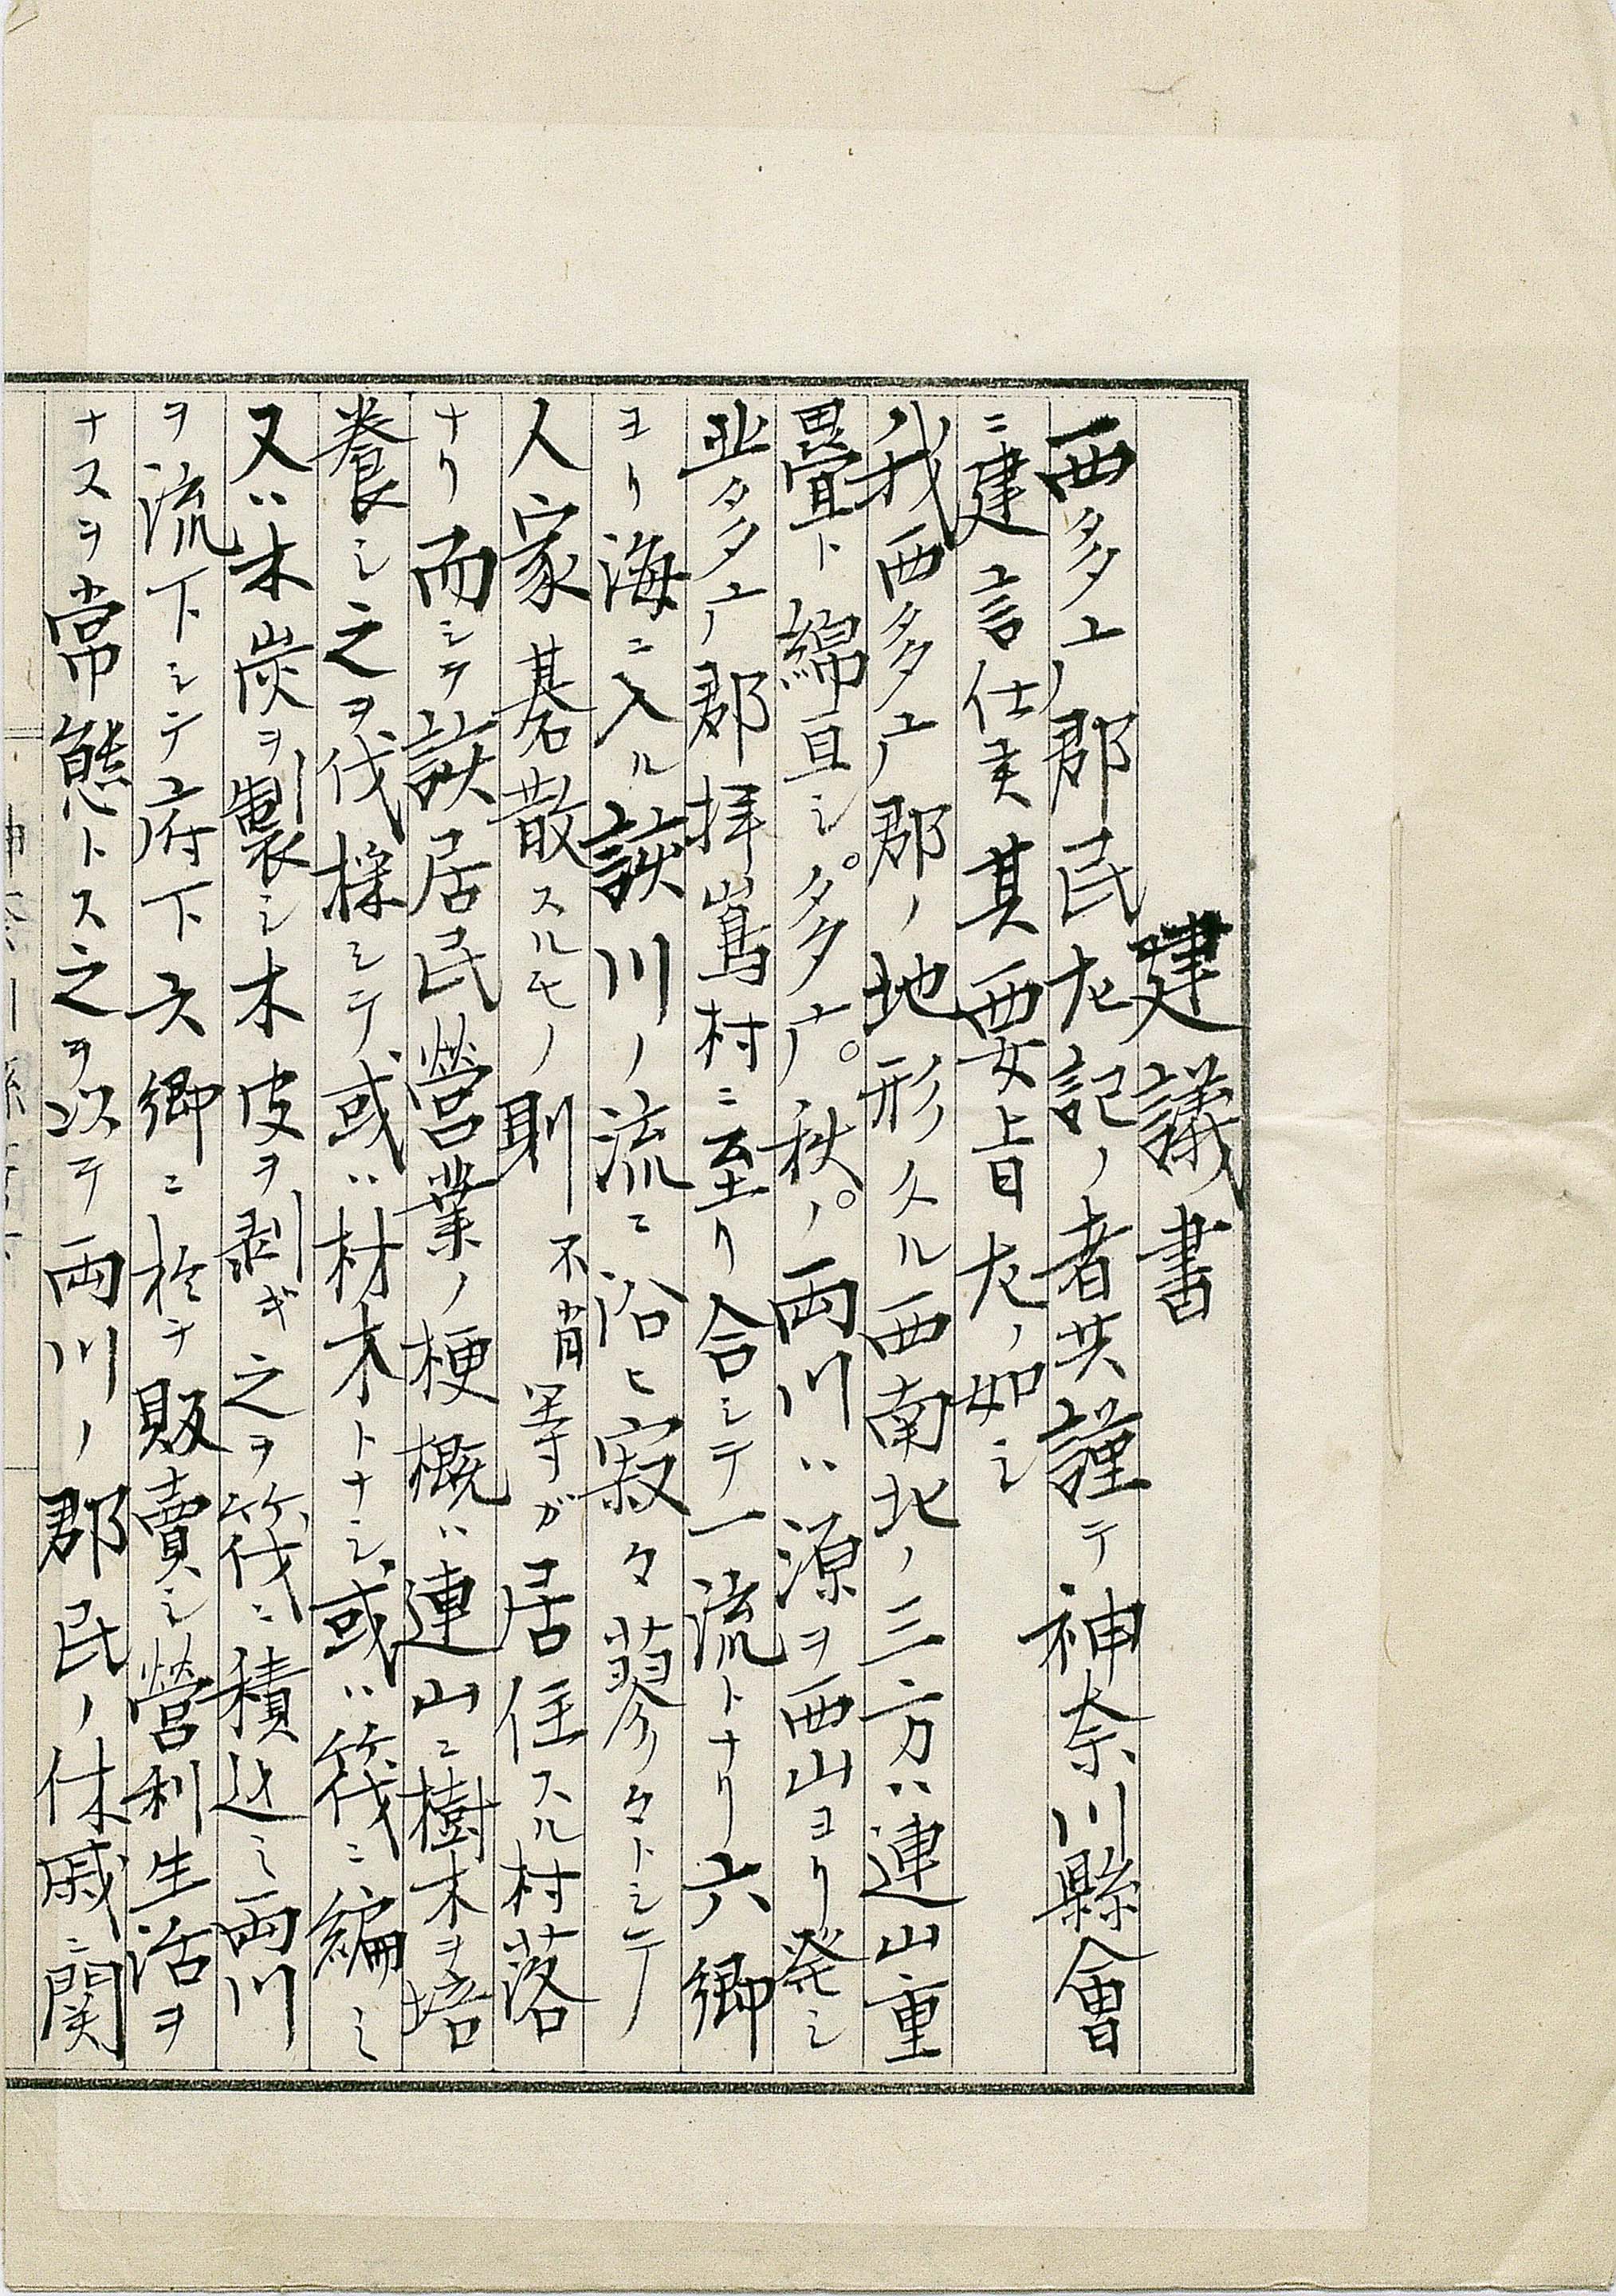 建議書
西多广郡民左記ノ者共謹テ神奈川縣會
ニ建言仕候其要旨左ノ如シ
我西多广郡ノ地形タル西南北ノ三方ハ連山重
畳ト綿亘シ。多广。秋。ノ両川ハ源ヲ西山ヨリ発シ
北多广郡拝嶌村ニ至リ合シテ一流トナリ六郷
ヨリ海ニ入ル該川ノ流ニ沿ヒ寂々蓼々トシテ
人家碁散スルモノ則不肖等ガ居住スル村落
ナリ而シテ該居民營業ノ梗概ハ連山ニ樹木ヲ培
養シ之ヲ伐採シテ或ハ材木トナシ或ハ筏ニ編ミ
又ハ木炭ヲ製シ木皮ヲ剥ギ之ヲ筏ニ積込ミ両川
ヲ流下シテ府下六郷ニ於テ販賣シ營利生活ヲ
ナスヲ常態トス之ヲ以テ両川ノ郡民ノ休戚ニ関